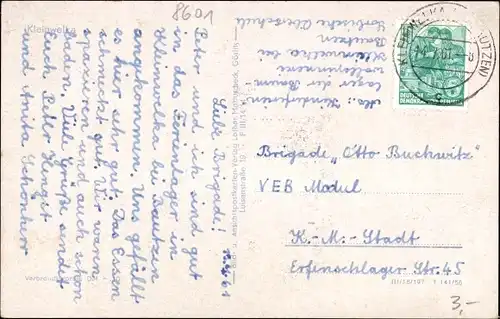 Kleinwelka
8601
Liebe Brigade!
Peter und ich sind gut
in das Ferienlager in
Kleinwelka bei Bautzen
angkommen. Uns gefällt
es hier sehr gut. Das Essen
schmeckt gut. Wir waren
spazieren und auch schon
baden. Viele Grüße sendet
euch Peter Hengst
und Anita Schönherr
Abs.: Kinderferien
lager der Baum-
wollspinnerei
Kleinwelka bei
Bautzen
Sorbische Oberschule
KLEINWELKA (BAUTZEN)
Brigade „Otto Buchwitz“
VEB Modul
K.-M.-Stadt
Erfenschlager Str. 45
III/18/197 1 141/56
3,-